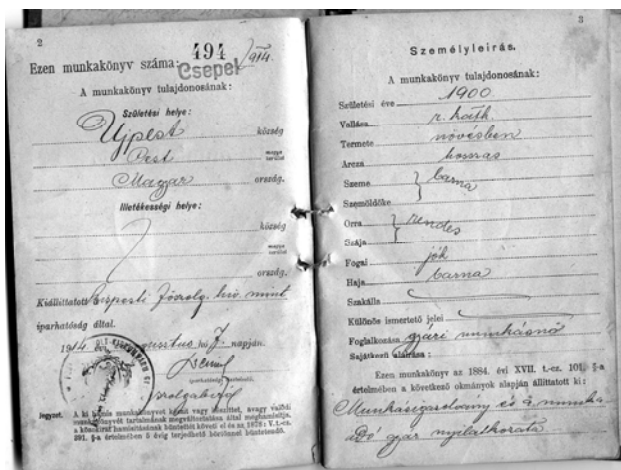 2
Ezen munkakönyv száma: 494 /914.
Csepel
A munkakönyv tulajdonosának:
Születési helye:
Ujpest község
Pest megye
terület
Magyar ország.
Illetékességi helye:
község
megye
terület
ország.
Kiállíttatott Bpesti Főszolg. hiv. mint
iparhatóság által.
1914 évi augusztus hó 7 napján.
iparhatósági
szolgabíró
Jegyzet. A ki hamis munkakönyvet készít vagy készíttet, avagy valódi
munkakönyvet tartalmának megváltoztatása által meghamisítja,
a közokirat hamisításának büntettét követi el és az 1878: V. t.-cz.
391. §-a értelmében 5 évig terjedhető börtönnel büntetendő.
3
Személyleirás.
A munkakönyv tulajdonosának:
Születési éve 1900
Vallása r. kath.
Termete növésben
Arcza hosszas
Szeme barna
Szemöldöke
Orra rendes
Szája
Fogai jók
Haja barna
Szakálla
Különös ismertető jelei
Foglalkozása gyári munkásnő
Sajátkezű aláírása:
Ezen munkakönyv az 1884. évi XVII. t.-cz. 101. §-a
értelmében a következő okmányok alapján állíttatott ki:
Munkásigazolvány és a munka
adó gyár nyilatkozata